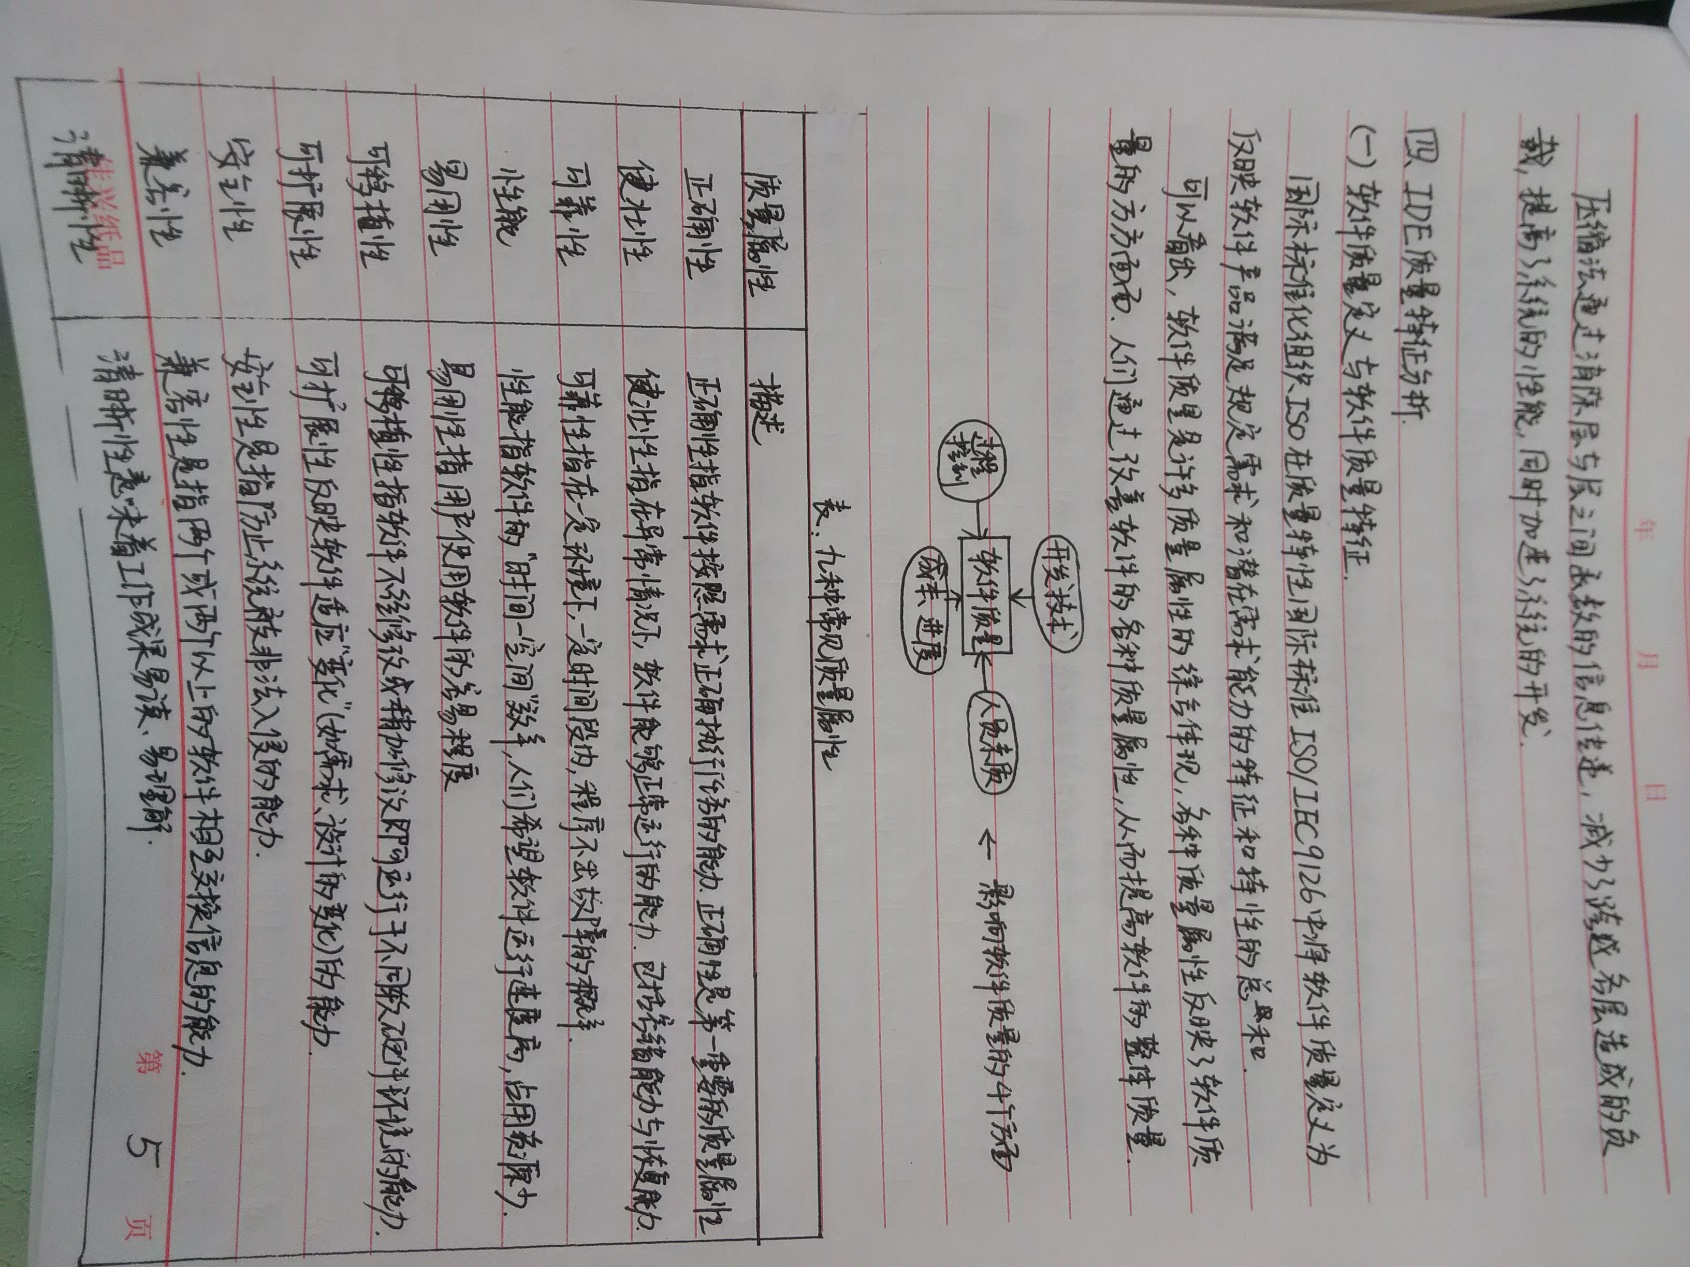 年 月 日
压缩法通过消除层与层之间函数的信息传递，减少了跨越各层造成的负
载，提高了系统的性能，同时加速了系统的开发.
四 IDE质量特征分析.
(一) 软件质量定义与软件质量特征.
国际标准化组织ISO在质量特性国际标准ISO/IEC9126中将软件质量定义为
反映软件产品满足规定需求和潜在需求能力的特征和特性的总和.
可以看出，软件质量是许多质量属性的综合体现，各种质量属性反映了软件质
量的方方面面.人们通过改善软件的各种质量属性，从而提高软件的整体质量.
开发技术
过程控制
软件质量
人员素质
← 影响软件质量的4个方面
成本、进度
表.九种常见质量属性
质量属性 描述
正确性 正确性指软件按照需求正确执行任务的能力.正确性是第一重要的质量属性
健壮性 健壮性指在异常情况下，软件能够正常运行的能力.包括容错能力与恢复能力.
可靠性 可靠性指在一定环境下，一定时间段内，程序不出故障的概率.
性能 性能指软件的“时间—空间”效率，人们希望软件运行速度高，占用资源少.
易用性 易用性指用户使用软件的容易程度
可移植性 可移植性指软件不经修改或稍加修改即可运行于不同软硬件环境的能力.
可扩展性 可扩展性反映软件适应“变化”(如需求、设计的变化)的能力.
安全性 安全性是指防止系统被非法入侵的能力.
兼容性 兼容性是指两个或两个以上的软件相互交换信息的能力.
清晰性 清晰性意味着工作成果易读、易理解.
第 5 页